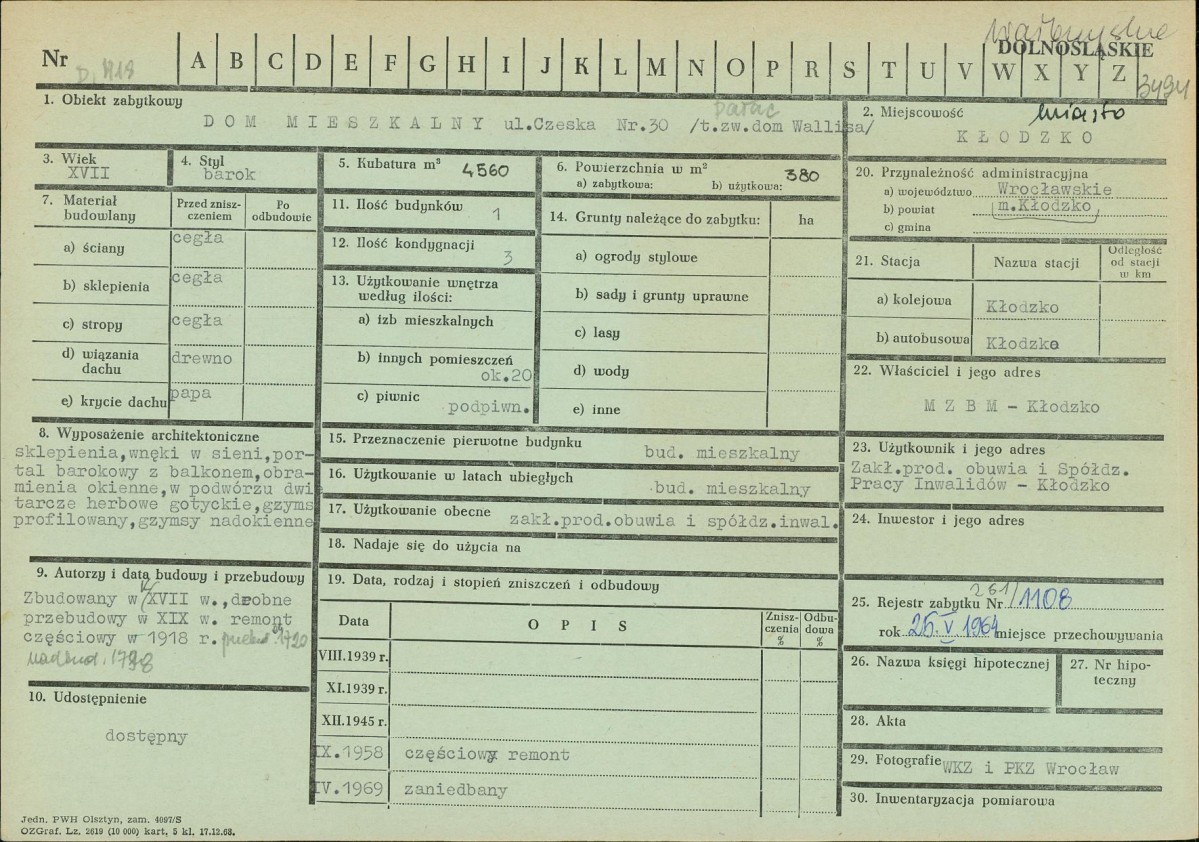 wałbrzyskie
Nr A B C D E F G H I J K L M N O P R S T U V W X Y Z DOLNOŚLĄSKIE
3494
1. Obiekt zabytkowy
pałac
DOM MIESZKALNY ul.Czeska Nr.30 /t.zw.dom Wallisa/
2. Miejscowość miasto
KŁODZKO
3. Wiek
XVII
4. Styl
barok
5. Kubatura m³ 4560
6. Powierzchnia w m²
a) zabytkowa: b) użytkowa: 380
7. Materiał budowlany
Przed zniszczeniem
Po odbudowie
a) ściany cegła
b) sklepienia cegła
c) stropy cegła
d) wiązania dachu drewno
e) krycie dachu papa
11. Ilość budynków 1
12. Ilość kondygnacji 3
13. Użytkowanie wnętrza
według ilości:
a) izb mieszkalnych
b) innych pomieszczeń
ok.20
c) piwnic
podpiwn.
14. Grunty należące do zabytku: ha
a) ogrody stylowe
b) sady i grunty uprawne
c) lasy
d) wody
e) inne
20. Przynależność administracyjna
a) województwo Wrocławskie
b) powiat m.Kłodzko
c) gmina
21. Stacja Nazwa stacji Odległość od stacji w km
a) kolejowa Kłodzko
b) autobusowa Kłodzko
22. Właściciel i jego adres
M Z B M - Kłodzko
8. Wyposażenie architektoniczne
sklepienia,wnęki w sieni,por-
tal barokowy z balkonem,obra-
mienia okienne,w podwórzu dwi
tarcze herbowe gotyckie,gzyms
profilowany,gzymsy nadokienne
15. Przeznaczenie pierwotne budynku
bud. mieszkalny
16. Użytkowanie w latach ubiegłych
bud. mieszkalny
17. Użytkowanie obecne zakł.prod.obuwia i spółdz.inwal.
18. Nadaje się do użycia na
23. Użytkownik i jego adres
Zakł.prod. obuwia i Spółdz.
Pracy Inwalidów - Kłodzko
24. Inwestor i jego adres
9. Autorzy i data budowy i przebudowy
Zbudowany w XVII w.,drobne
przebudowy w XIX w. remont
częściowy w 1918 r.
10. Udostępnienie
dostępny
19. Data, rodzaj i stopień zniszczeń i odbudowy
Data OPIS Zniszczenia % Odbudowa %
VIII.1939 r.
XI.1939 r.
XII.1945 r.
IX.1958 częściowy remont
IV.1969 zaniedbany
25. Rejestr zabytku Nr 261/1108
rok 25. V 1964 miejsce przechowywania
26. Nazwa księgi hipotecznej
27. Nr hipo-
teczny
28. Akta
29. Fotografie WKZ i PKZ Wrocław
30. Inwentaryzacja pomiarowa
Jedn. PWH Olsztyn, zam. 4097/S
OZGraf. Lz. 2619 (10 000) kart, 5 kl. 17.12.68.